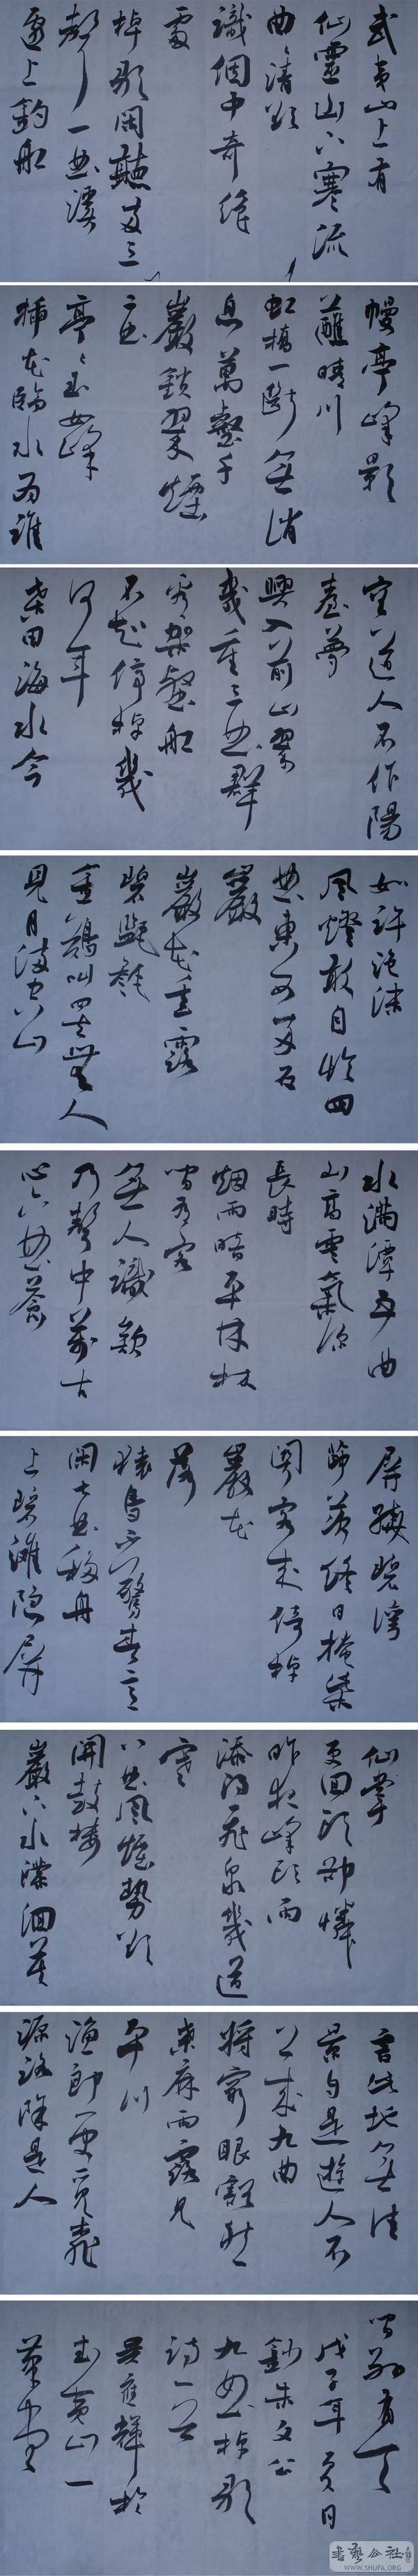 武夷山上有
仙靈山下寒流
曲曲清欲
識個中奇絕
處
棹歌閑聽兩三
聲一曲溪
邊上釣船
幔亭峰影
蘸晴川
虹橋一斷無消
息萬壑千
巖鎖翠煙
二曲
亭亭玉女峰
插花臨水為誰
容道人不作陽
臺夢
興入前山翠
幾重三曲君
看架壑船
不知停棹幾
何年
桑田海水今
如許泡沫
風燈敢自憐四
曲東西兩石
巖
巖花垂露
碧㲯毿
金鷄叫罷無人
見月滿空山
水滿潭五曲
山高雲氣深
長時
烟雨暗平林林
間有客
無人識欸
乃聲中萬古
心六曲蒼
屏繞碧灣
茆茨終日掩柴
關客來倚棹
巖花
落
猿鳥不驚春意
閑七曲移舟
上碧灘隱屏
仙掌
更回頭卻憐
昨夜峰頭雨
添得飛泉幾道
寒
八曲風煙勢欲
開鼓樓
巖下水瀠洄莫
言此地無佳
景自是遊人不
上來九曲
將窮眼豁然
桑麻雨露見
平川
漁郎更覓桃
源路除是人
間別有天
戊子年夏日
錄朱文公
九曲棹歌
詩一首
應輝於
武夷山一
草堂
書藝公社
WWW.SHUFA.ORG